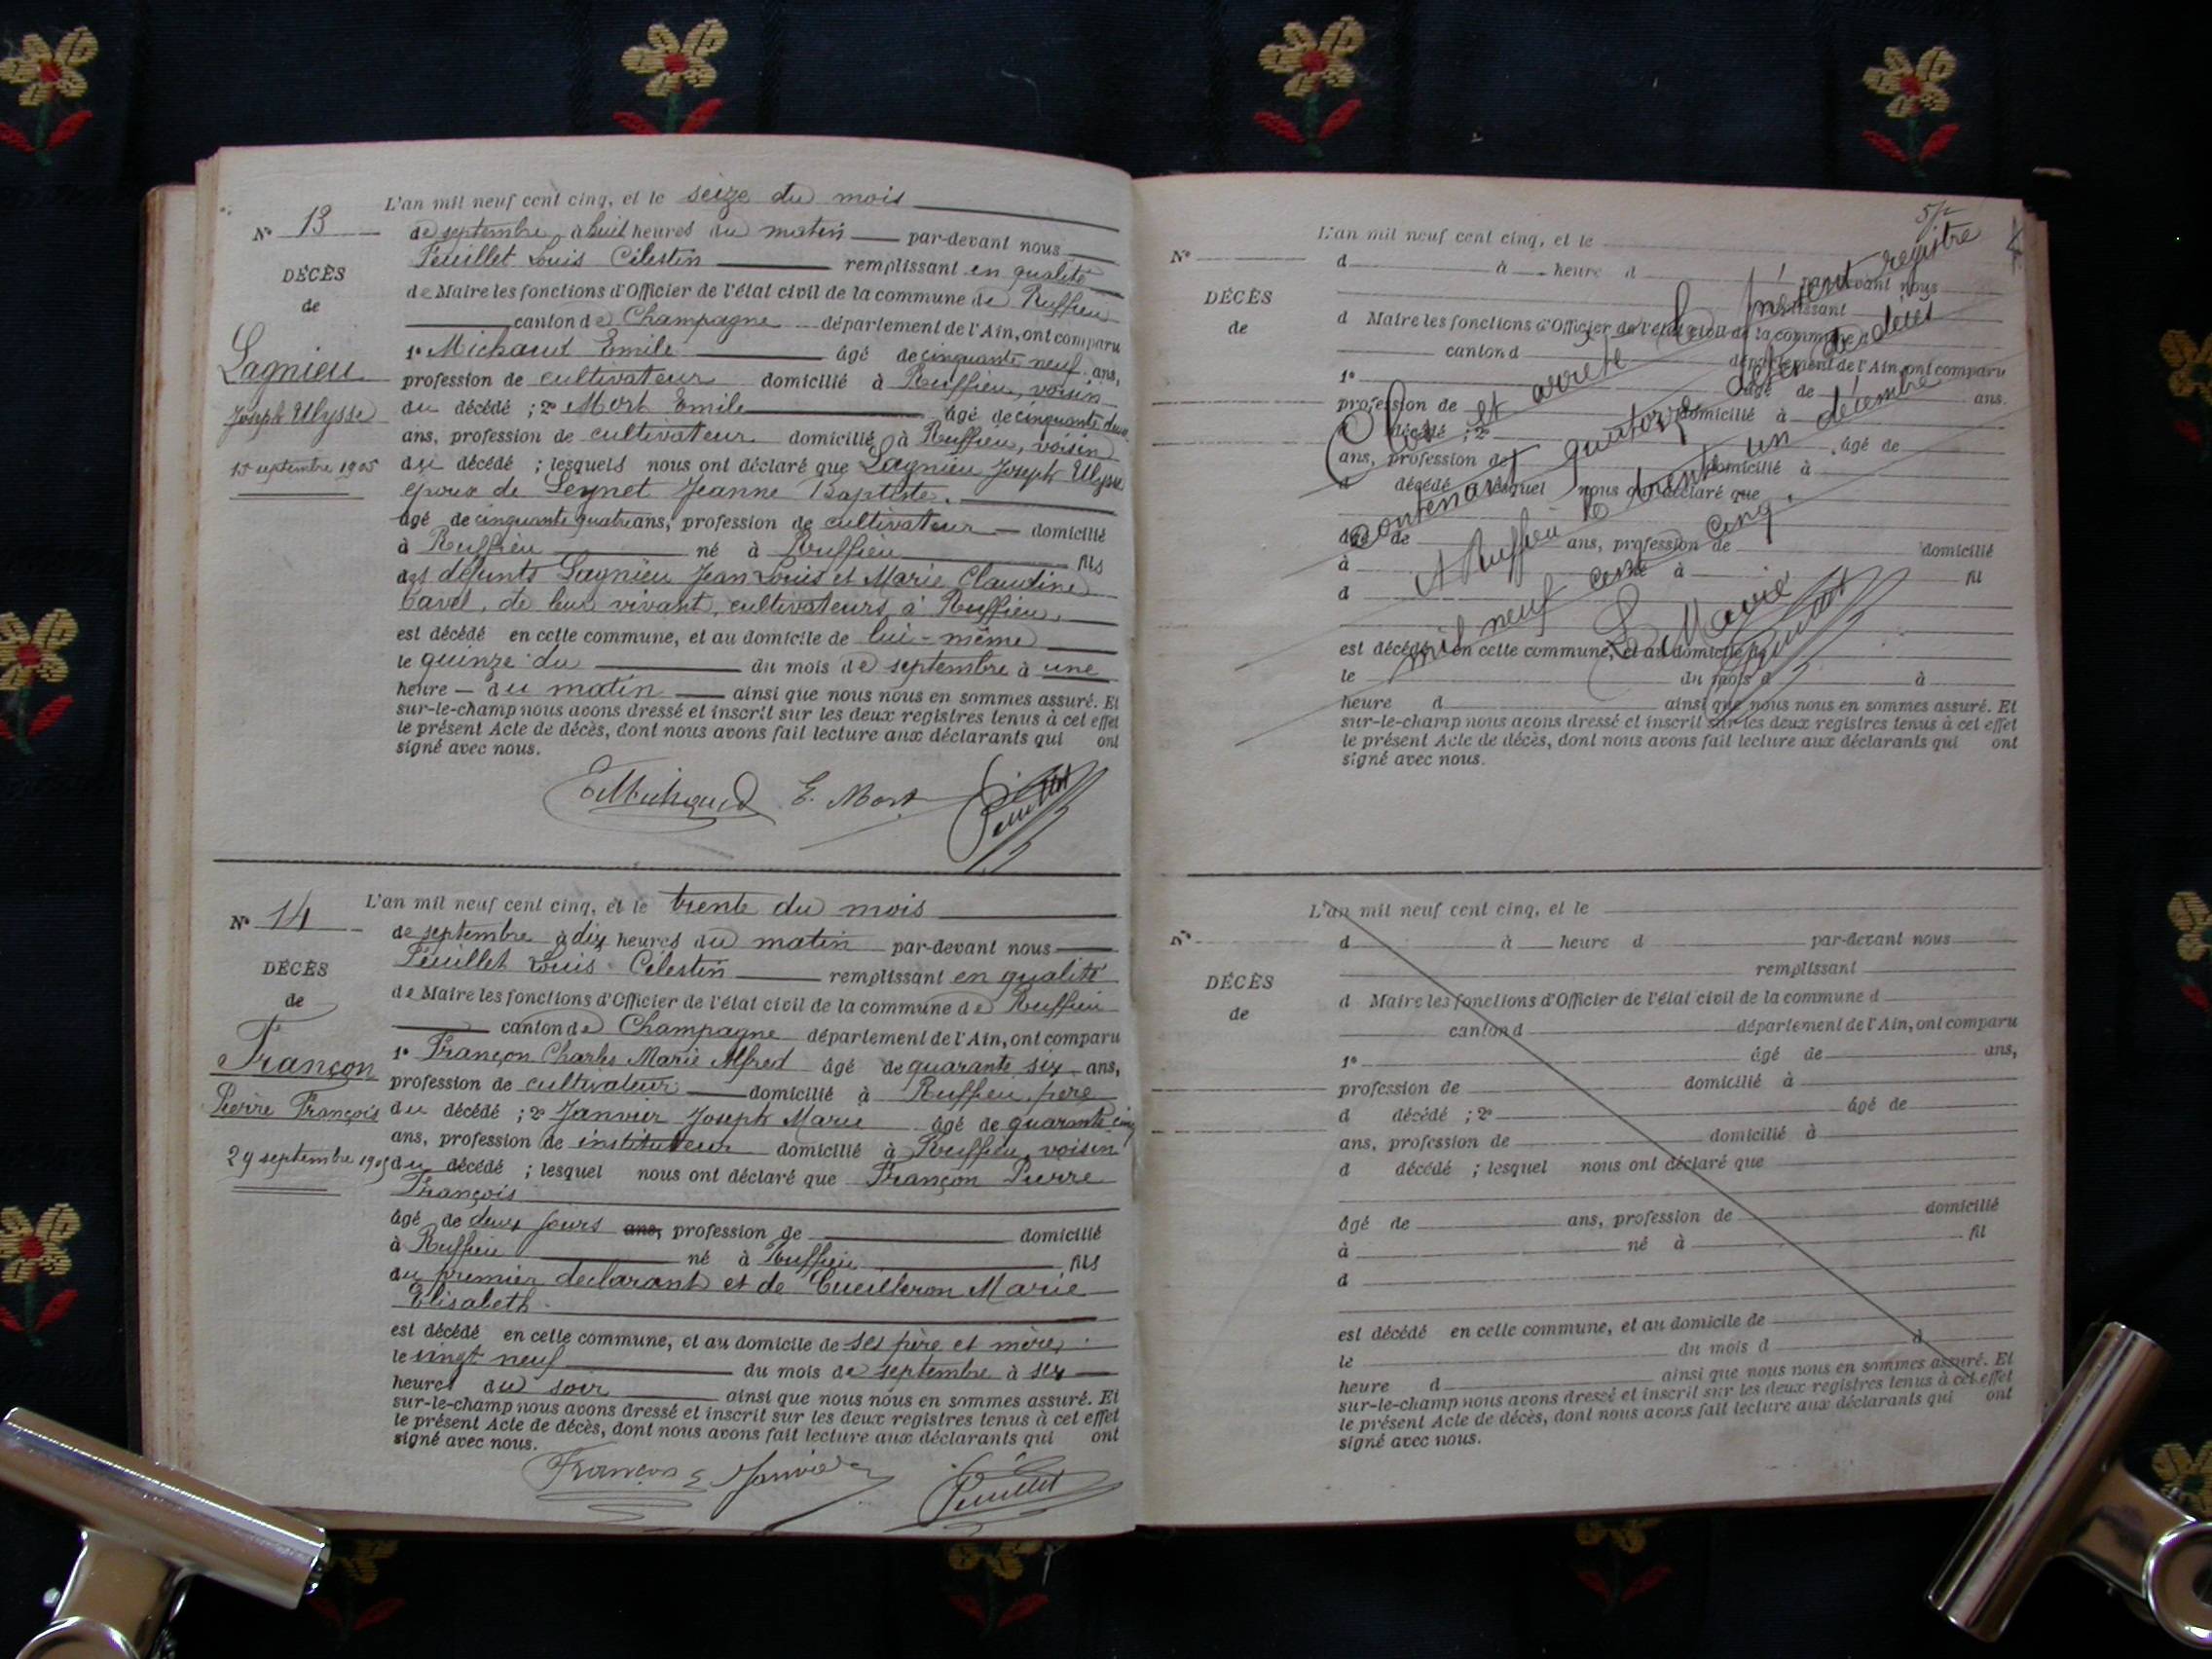 L'an mil neuf cent cinq, et le seize du mois
N° 13
de septembre à huit heures du matin par-devant nous
Feuillet Louis Célestin remplissant en qualité
DÉCÈS
de Maire les fonctions d'Officier de l'état civil de la commune de Ruffieu
de
canton de Champagne département de l'Ain, ont comparu
Lagnieu
1° Michaud Emile âgé de cinquante neuf ans,
profession de cultivateur domicilié à Ruffieu, voisin
Joseph Ulysse
du décédé ; 2° Mort Emile âgé de cinquante deux
ans, profession de cultivateur domicilié à Ruffieu, voisin
15 septembre 1905
du décédé ; lesquels nous ont déclaré que Lagnieu Joseph Ulysse
époux de Seynet Jeanne Baptiste.
âgé de cinquante quatre ans, profession de cultivateur domicilié
à Ruffieu né à Ruffieu fils
des défunts Lagnieu Jean Louis et Marie Claudine
Cavel, de leur vivant, cultivateurs à Ruffieu,
est décédé en cette commune, et au domicile de lui-même
le quinze du du mois de septembre à une
heure du matin ainsi que nous nous en sommes assuré. Et
sur-le-champ nous avons dressé et inscrit sur les deux registres tenus à cet effet
le présent Acte de décès, dont nous avons fait lecture aux déclarants qui ont
signé avec nous.
E Michaud E. Mort Feuillet
L'an mil neuf cent cinq, et le trente du mois
N° 14
de septembre à dix heures du matin par-devant nous
Feuillet Louis Célestin remplissant en qualité
DÉCÈS
de Maire les fonctions d'Officier de l'état civil de la commune de Ruffieu
de
canton de Champagne département de l'Ain, ont comparu
Françon
1° Françon Charles Marie Alfred âgé de quarante six ans,
profession de cultivateur domicilié à Ruffieu, père
Pierre François
du décédé ; 2° Janvier Joseph Marie âgé de quarante cinq
ans, profession de instituteur domicilié à Ruffieu, voisin
29 septembre 1905
du décédé ; lesquel nous ont déclaré que Françon Pierre
François
âgé de deux jours ans, profession de domicilié
à Ruffieu né à Ruffieu fils
du premier déclarant et de Cueilleron Marie
Elisabeth
est décédé en cette commune, et au domicile de ses père et mère,
le vingt neuf du mois de septembre à six
heures du soir ainsi que nous nous en sommes assuré. Et
sur-le-champ nous avons dressé et inscrit sur les deux registres tenus à cet effet
le présent Acte de décès, dont nous avons fait lecture aux déclarants qui ont
signé avec nous.
Françon Janvier Feuillet
L'an mil neuf cent cinq, et le
N°
d à heure d par-devant nous
remplissant
DÉCÈS
d Maire les fonctions d'Officier de l'état civil de la commune d
de
canton d département de l'Ain, ont comparu
1° âgé de ans.
profession de domicilié à
d décédé ; 2° âgé de
ans, profession de domicilié à
d décédé ; lesquel nous ont déclaré que
âgé de ans, profession de domicilié
à né à fil
d
est décédé en cette commune, et au domicile de
le du mois d à
heure d ainsi que nous nous en sommes assuré. Et
sur-le-champ nous avons dressé et inscrit sur les deux registres tenus à cet effet
le présent Acte de décès, dont nous avons fait lecture aux déclarants qui ont
signé avec nous.
Clos et arrêté le présent registre
contenant quatorze actes de décès
A Ruffieu le trente un décembre
mil neuf cent cinq.
Le Maire
Feuillet
L'an mil neuf cent cinq, et le
N°
d à heure d par-devant nous
remplissant
DÉCÈS
d Maire les fonctions d'Officier de l'état civil de la commune d
de
canton d département de l'Ain, ont comparu
1° âgé de ans,
profession de domicilié à
d décédé ; 2° âgé de
ans, profession de domicilié à
d décédé ; lesquel nous ont déclaré que
âgé de ans, profession de domicilié
à né à fil
d
est décédé en cette commune, et au domicile de
le du mois d à
heure d ainsi que nous nous en sommes assuré. Et
sur-le-champ nous avons dressé et inscrit sur les deux registres tenus à cet effet
le présent Acte de décès, dont nous avons fait lecture aux déclarants qui ont
signé avec nous.